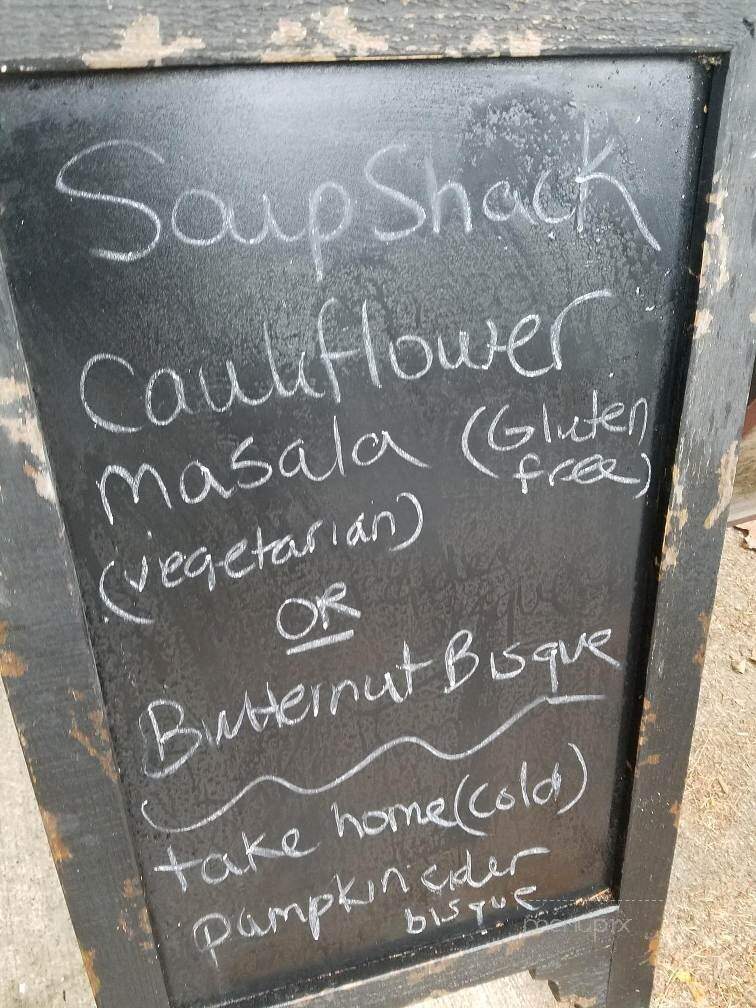 Soup Shack
Cauliflower
masala (Gluten
free)
(vegetarian)
OR
Butternut Bisque
take home (cold)
pumpkin cider
bisque
menupix